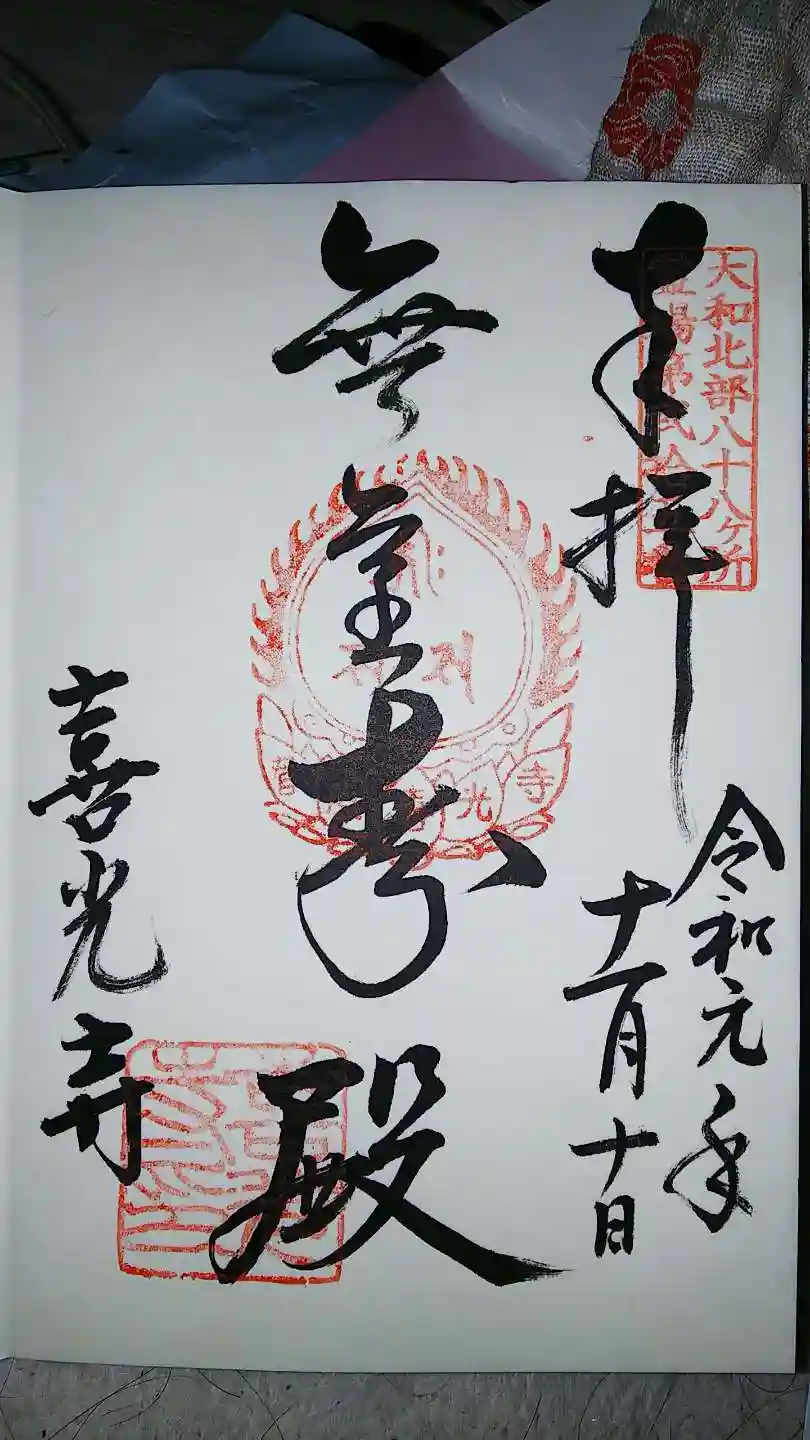 大和北部八十八ヶ所
霊場第弐拾
奉拝
令和元年
十一月十日
無量寿殿
光寺
喜光寺